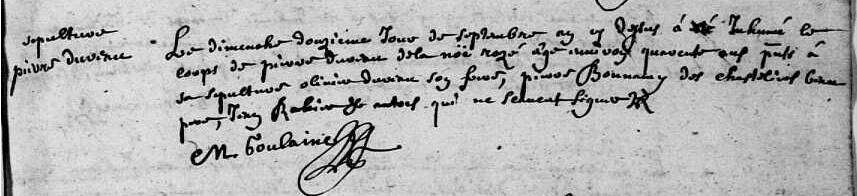 sepulture
pierre duveau
Le dimenche douziesme Jour de septembre an q dessus à esté Inhumé le
corps de pierre duveau de la noë rozé âgé environ quarente ans pnts à
sa sepulture olivier duveau son frere, pierre Bonnany des chasteliers beau
pere, Jan Rabier & autres qui ne scavent signer
M. Goulaine